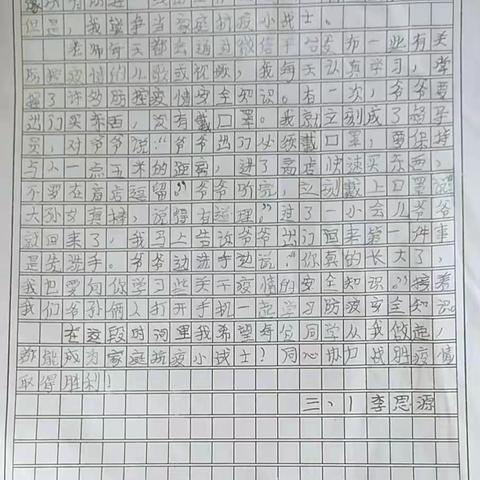 但是，我能争当家庭抗疫小战士。
老师每天都会通过微信平台发布一些有关
防控疫情的儿歌或视频，我每天认真学习，掌
握了许多防控疫情安全知识。有一次，爷爷要
出门买东西，没有戴口罩。我就立刻成了督导
员，对爷爷说：“爷爷出门必须戴口罩，要保持
与人一点五米的距离，进了商店快速买东西，
不要在商店逗留。”爷爷听完，立刻戴上口罩说
大孙女真棒，说得有道理，”过了一小会儿爷爷
就回来了，我马上告诉爷爷出门回来第一件事
是先洗手。爷爷边洗手边说：“你真的长大了，
我把要向你学习些关于疫情的安全知识。”接着
我们爷孙俩人打开手机一起学习防疫安全知识
在这段时间里我希望每位同学从我做起，
都能成为家庭抗疫小战士！同心协力战胜疫情
取得胜利！
三、1 李思源